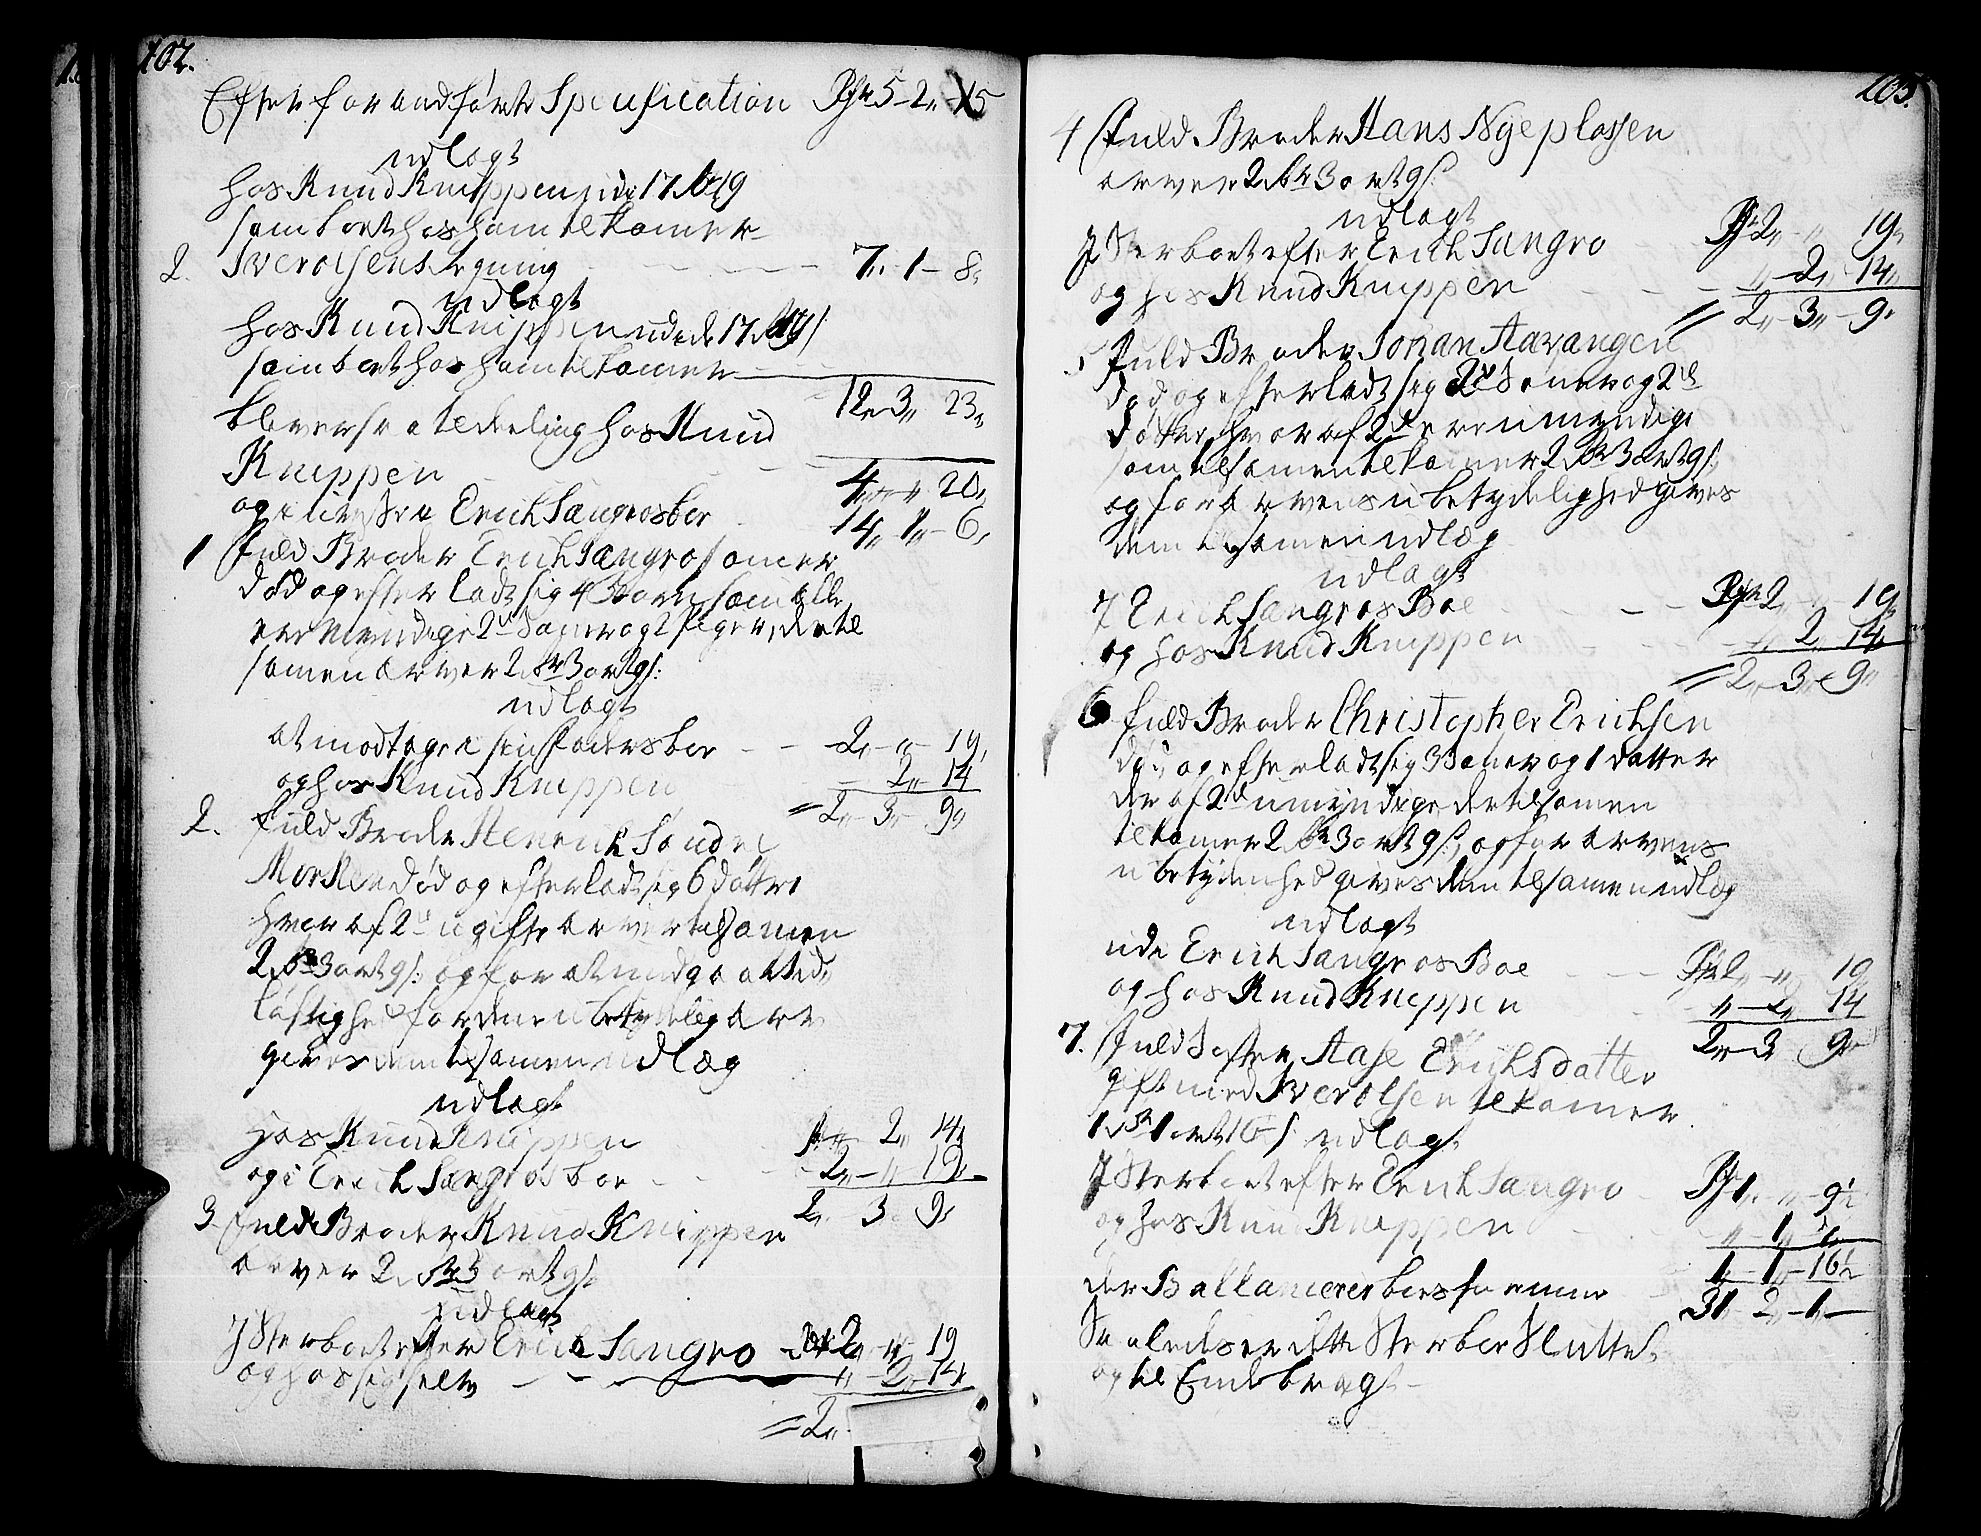 102.
Efter forandførte Specification Rdr 5 - 2,, - 15
udlagt
hos Knud Knippen 17
som bort hos ham tilkomer
2. Iver Olsens Regning 7,, - 1 - 8,,
udlagt
hos Knud Knippen 17
som bort hos ham tilkomer
12,, 3,, 23,,
bliver fra til deling hos Knud
Knippen 4,, - ,, 20,,
og Erich Sangros boe 14,, 1,, - 6,,
1 Fuld Broder Erich Sangro som er
død og efterladt sig 4 Børn som alle
ere Myndige 2de Sønner og 2 piger, der til
samen arver 2 Rdr 3 ort 9 s:
udlagt
at modtage i sin Faders boe 2,, - ,, - 19,,
og hos Knud Knippen 2,, 14
= 2,, - 3,, - 9,,
2. Fuld Broder Henrich Søndre
Morken død og efterladt sig 6 døttre
hvoraf 2de ugifte arver tilsamen
2 Rdr 3 ort 9 s: og for at undgaa
løftighed for denne ubetydelig arv
gives dem tilsamen udlæg
udlagt
hos Knud Knippen ,, 2,, 14,,
og i Erich Sangros boe 2,, - ,, 19,,
2,, 3 9,,
3. Fuld Broder Knud Knippen
arver 2 Rdr 3 ort 9 s:
udlagt
J Sterboet efter Erich Sangro Rdr 2,, - ,, 19
og hos sig selv ,, - 2,, - 14,,
= 2,,
103.
4 Fuld Broder Hans Nyeplassen
arver 2 Rdr 3 ort 9 s:
udlagt
J Sterboet efter Erich Sangro Rdr 2,, - ,, 19,,
og hos Knud Knippen ,, - 2,, - 14,,
= 2,, - 3,, - 9,,
5 Fuld Broder Johan Haavangen
død og efterladt sig 2de Sønner og 2de
døttre hvoraf 2de ere umyndige
som tilsamen tilkomer 2 Rdr 3 ort 9 s:
og for arvens ubetydelighed gives
dem tilsamen udlæg
udlagt
J Erich Sangros Boe Rdr 2,, - ,, 19
og hos Knud Knippen ,, 2,, 14,,
= 2,, - 3,, - 9,,
6 Fuld Broder Christopher Erichsen
død og efterladt sig 3 Sønner og 1 datter
der af 2de umyndige der tilsamen
tilkomer 2 Rdr 3 ort 9 s:, og for arvens
ubetydenhed gives dem tilsamen udlæg
udlagt
udi Erich Sangros Boe Rdr 2,, - ,, 19
og hos Knud Knippen ,, - 2,, 14
2,, - 3 9,,
7. Fuld Søster Aase Erichsdatter
gift med Iver Olsen tilkomer
1 Rdr 1 ort 16½ s: udlagt
J Sterboet efter Erich Sangro Rdr 1,, - ,, - 9½
og hos Knud Knippen ,, - 1,, 7,,
1,, - 1,, - 16½
der Ballancerer boets forenne 31 - 2,, - 1,, -
Saaledes er dette Sterboe Sluttet
og til Ende bragt